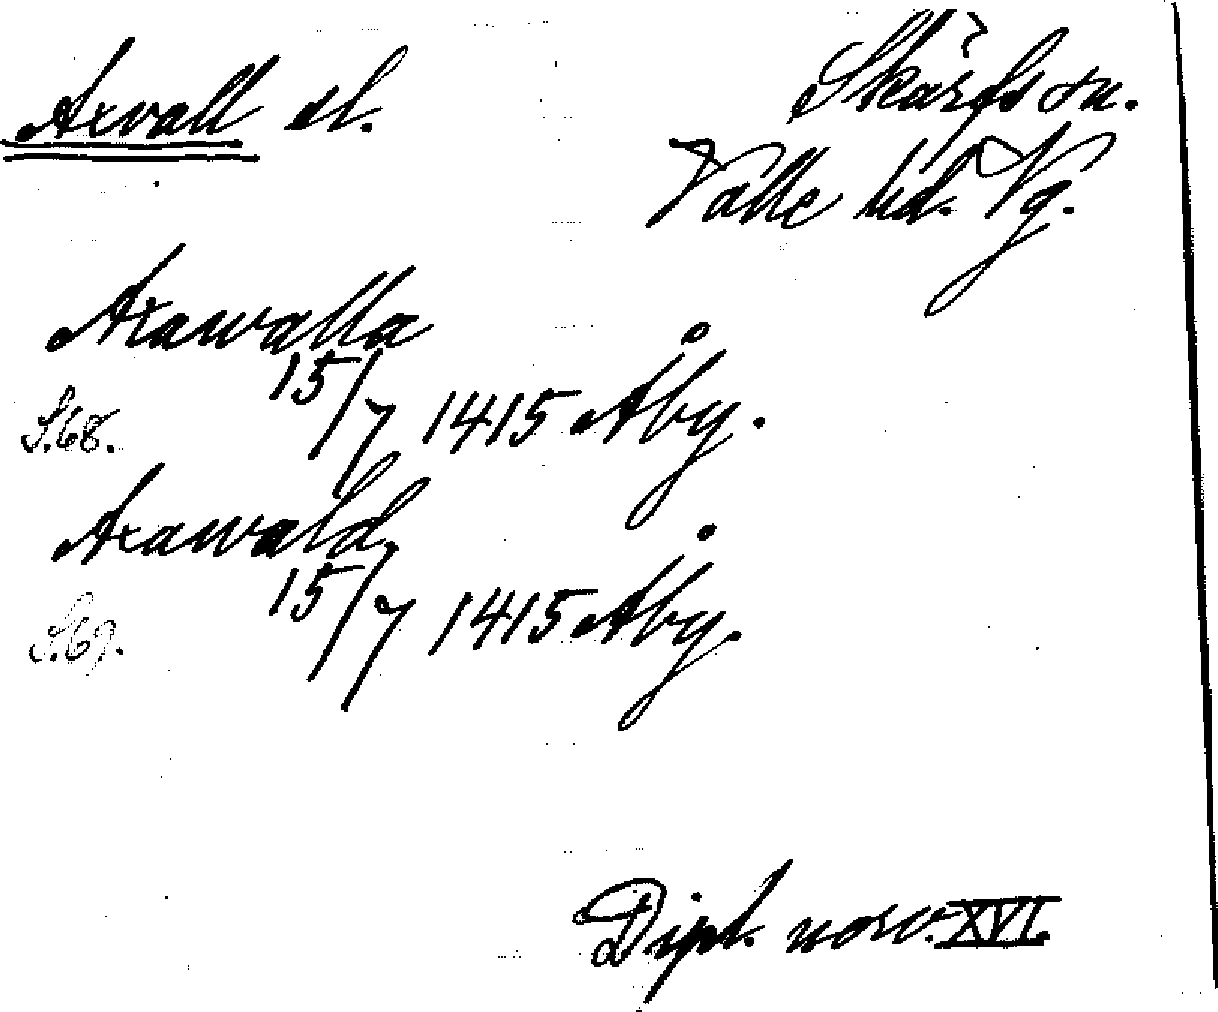 Axvall sl. Skärfs sn.
Valle hd. Vg.
Axawalla
15/7 1415 Åby.
S.68.
Axawald,
15/7 1415 Åby.
S.69.
Dipl. norv. XVI.